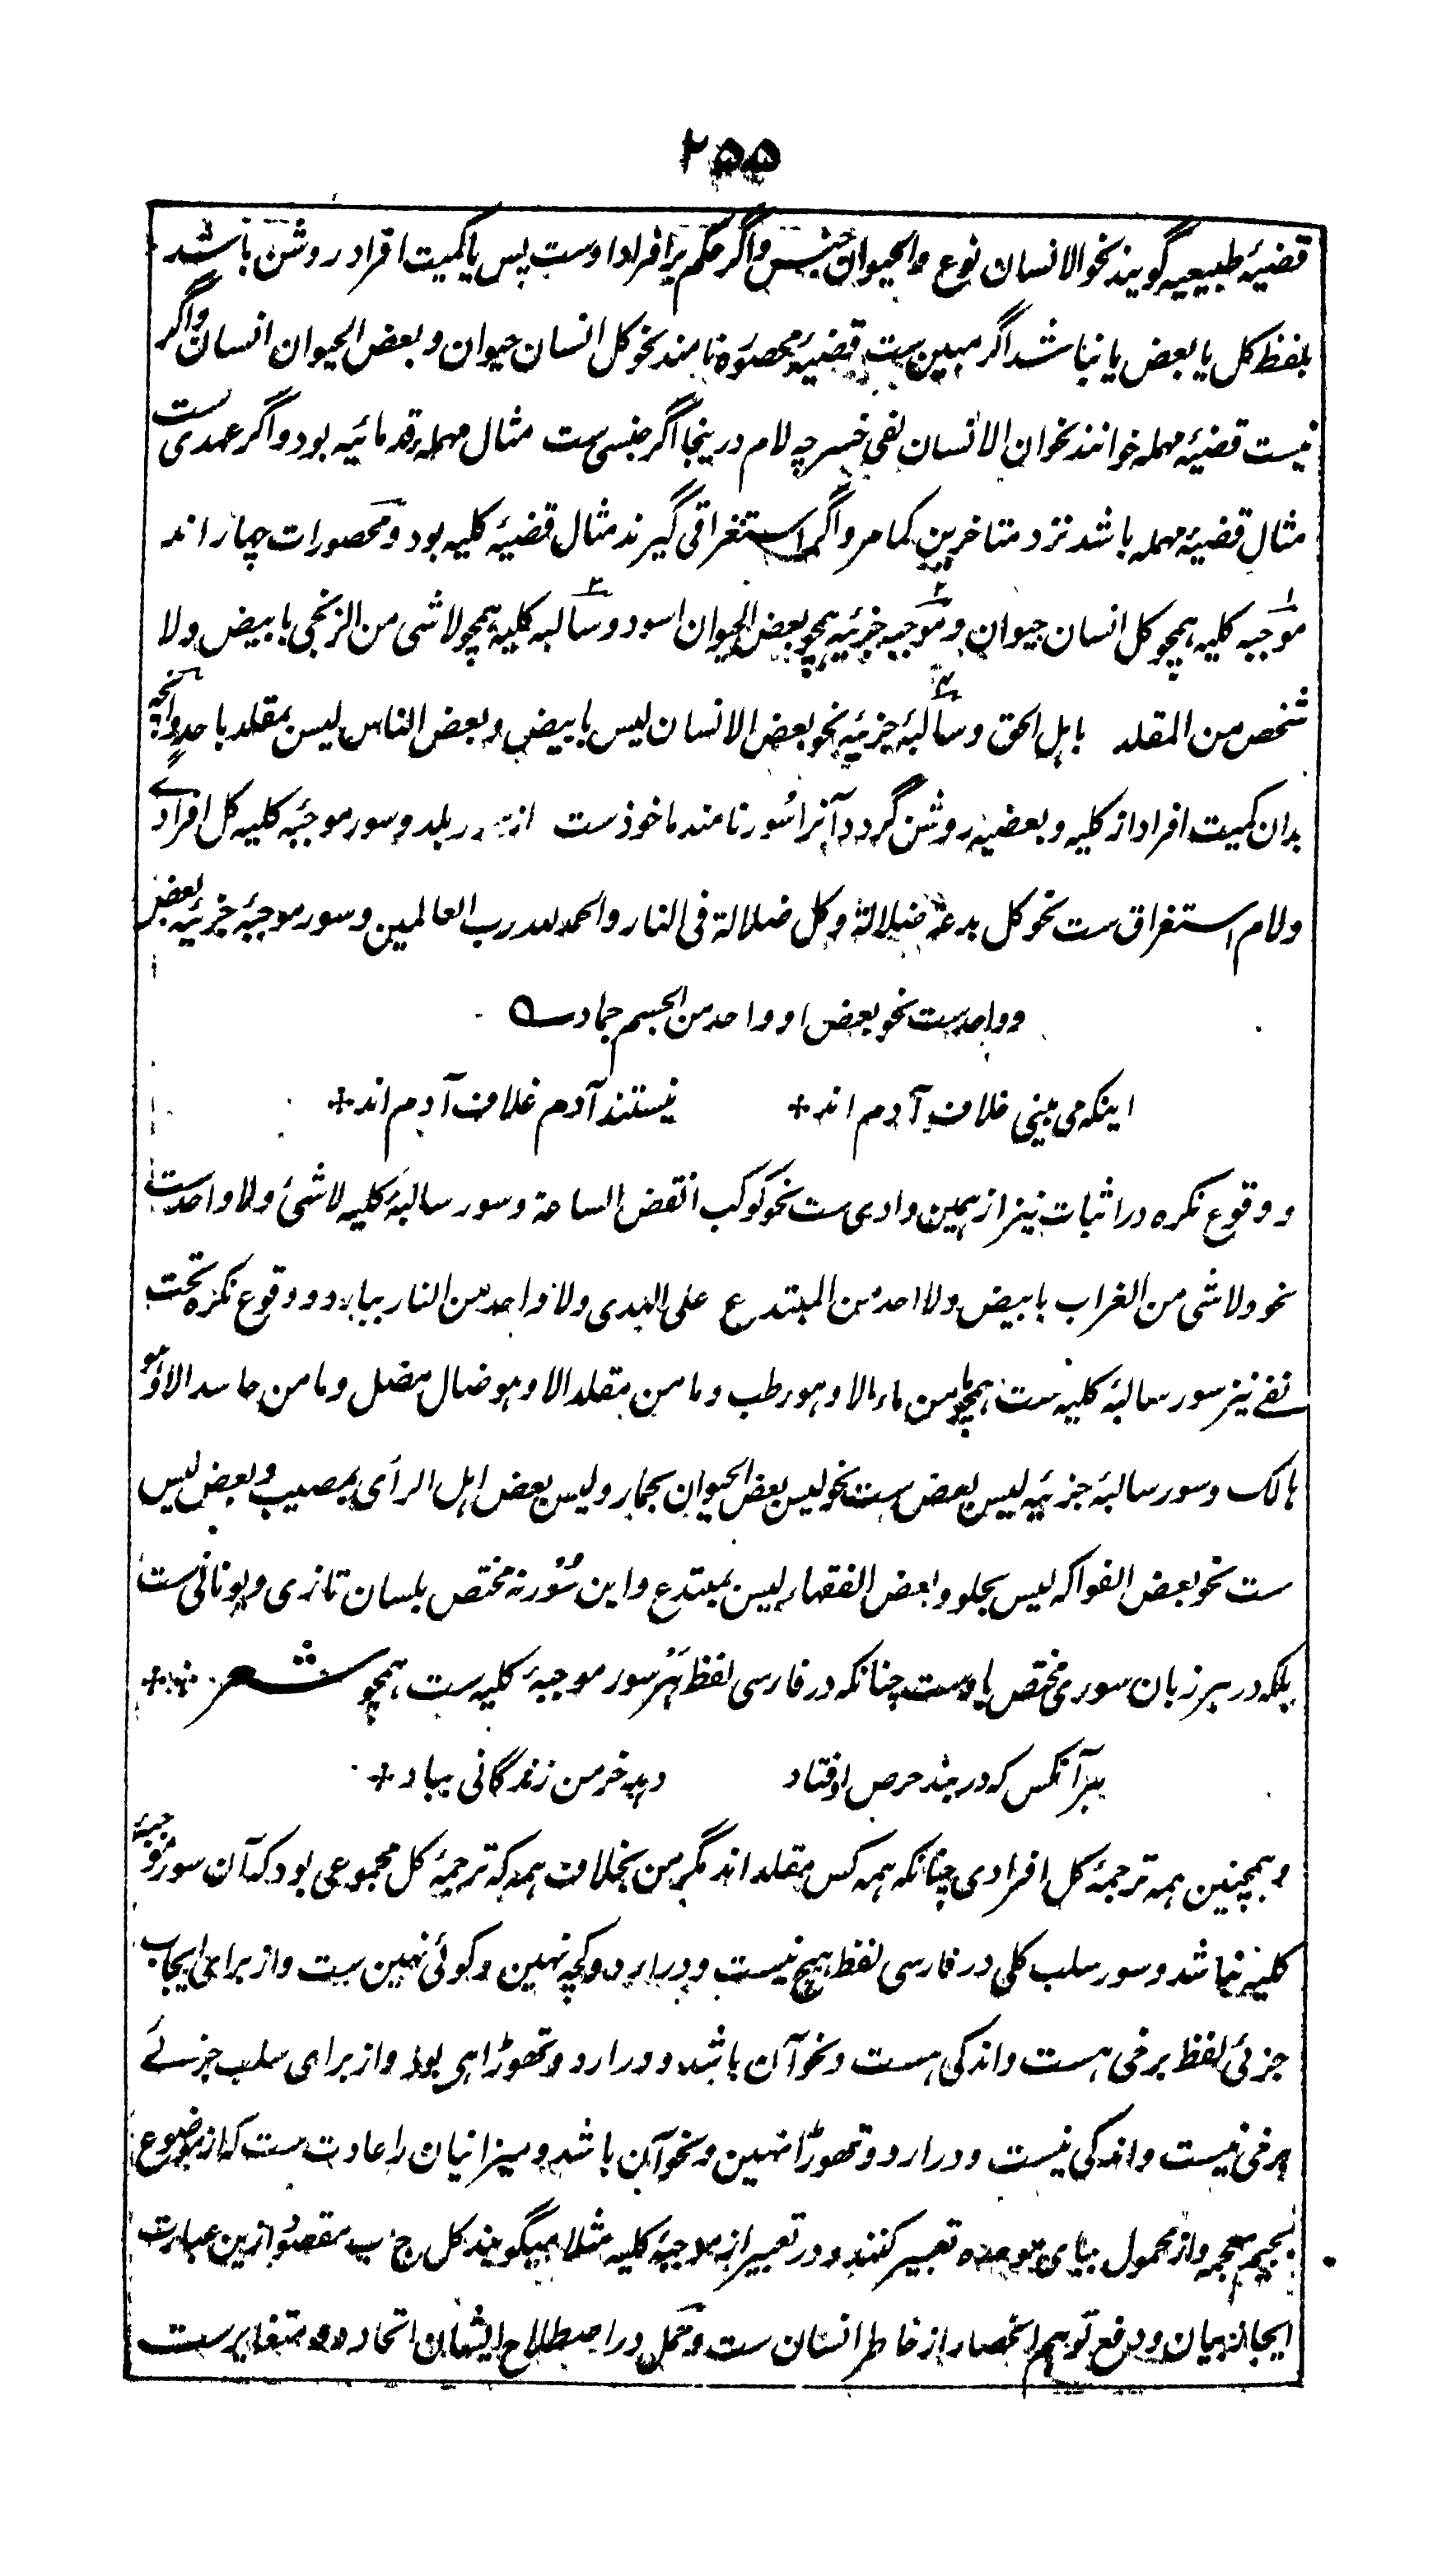 ۲۵۵
قضیۂ طبیعیہ گویند نحو الانسان نوع والحیوان جنس واگر حکم بر افراد اوست پس یا کمیت افراد روشن باشد
بلفظ کل یا بعض یا نباشد اگر مبین ست قضیۂ محصورہ نامند نحو کل انسان حیوان و بعض الحیوان انسان واگر
نیست قضیۂ مہملہ خوانند نحو ان الانسان لفی خسر چہ لام درینجا اگر جنسی ست مثال مہملہ قدمائیہ بود واگر عہدی ست
مثال قضیۂ مہملہ باشد نزد متاخرین کما مر واگر استغراقی گیرند مثال قضیۂ کلیہ بود و محصورات چہار اند
موجبہ کلیہ ہمچو کل انسان حیوان و موجبہ جزئیہ ہمچو بعض الحیوان اسود و سالبہ کلیہ ہمچو لاشی من الزنجی بابیض ولا
شخص من المقلد باہل الحق و سالبۂ جزئیہ نحو بعض الانسان لیس بابیض و بعض الناس لیس بمقلد باحد وآنچہ
بدان کمیت افراد از کلیہ و بعضیہ روشن گردد آنرا سُور نامند ماخوذ ست از بلد و سور موجبۂ کلیہ کل افرادی
ولام استغراق ست نحو کل بدعۃ ضلالۃ وکل ضلالۃ فی النار والحمد للہ رب العالمین و سور موجبۂ جزئیہ بعض
و واحد ست نحو بعض او واحد من الجسم جماد ؎
اینکہ می بینی خلاف آدم اند + نیستند آدم غلاف آدم اند +
و وقوع نکرہ در اثبات نیز از ہمین وادی ست نحو کوکب انقض الساعۃ و سور سالبۂ کلیہ لا شئ ولا واحد ست
نحو ولا شی من الغراب بابیض ولا احد من المبتدع علی الہدی ولا واحد من النار ببارد و وقوع نکرہ تحت
نفے نیز سور سالبۂ کلیہ ست ہمچو ما من ماء الا وہو رطب وما من مقلد الا وہو ضال مضل وما من حاسد الا وہو
ہالک و سور سالبۂ جزئیہ لیس بعض ست نحو لیس بعض الحیوان بحمار ولیس بعض اہل الرأی بمصیب و بعض لیس
ست نحو بعض الفواکہ لیس بحلو و بعض الفقہاء لیس بمبتدع واین سُوُر نہ مختص بلسان تازی و یونانی ست
بلکہ در ہر زبان سوری مختص باوست چنانکہ در فارسی لفظ ہَر سور موجبۂ کلیہ ست ہمچو شعر
ہر آنکس کہ در بند حرص اوفتاد دہد خرمن زندگانی بباد +
و ہمچنین ہمہ ترجمۂ کل افرادی چنانکہ ہمہ کس مقلد اند مگر من بخلاف ہمہ کہ ترجمۂ کل مجموعی بود کہ آن سور موجبۂ
کلیہ نباشد و سور سلب کلی در فارسی لفظ ہیچ نیست و در اردو کچہ نہین و کوئی نہین ست و از برای ایجاب
جزئی لفظ برخی ہست و اندکی ہست و نحو آن باشد و در اردو تھوڑا ہی بود و از برای سلب جزئے
برخی نیست و اندکی نیست و در اردو تھوڑا نہین و نحو آن باشد و میزانیان را عادت ست کہ از موضوع
بجیم معجمہ و از محمول ببای موحدہ تعبیر کنند و در تعبیر از موجبۂ کلیہ مثلا میگویند کل ج ب مقصود ازین عبارت
ایجاز بیان و دفع توہم انحصار از خاطر انسان ست و حمل در اصطلاح ایشان اتحاد دو متغایر ست